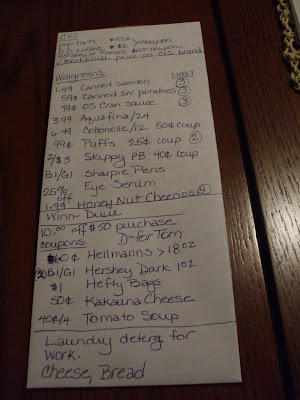 CVS
pop tarts $ >coupon
D.D coffee $2
Hershey or Reeses $ coupon
√ toothbrush price on CVS brand
Walgreens LIMIT
1.99 Canned Salmon 3
59¢ Canned swt potatoes 3
79¢ OS Cran sauce 3
3.99 Aquafina/24
6.49 Cottonelle/12 50¢ coup
99¢ Puffs 25¢ coup 2
2/$3 Skippy PB 40¢ coup
B1/G1 Sharpie Pens
25% off Eye Serum
1.99 Honey Nut Cheerios 4
Winn-Dixie
10.00 off $50 purchase
coupons D-for Tom
60¢ Hellmanns > 18oz
B1/G1 Hershey Dark 1oz
$1 Hefty Bags
50¢ Kakauna Cheese
40¢/4 Tomato Soup
Laundry deterg for
work.
Cheese, Bread